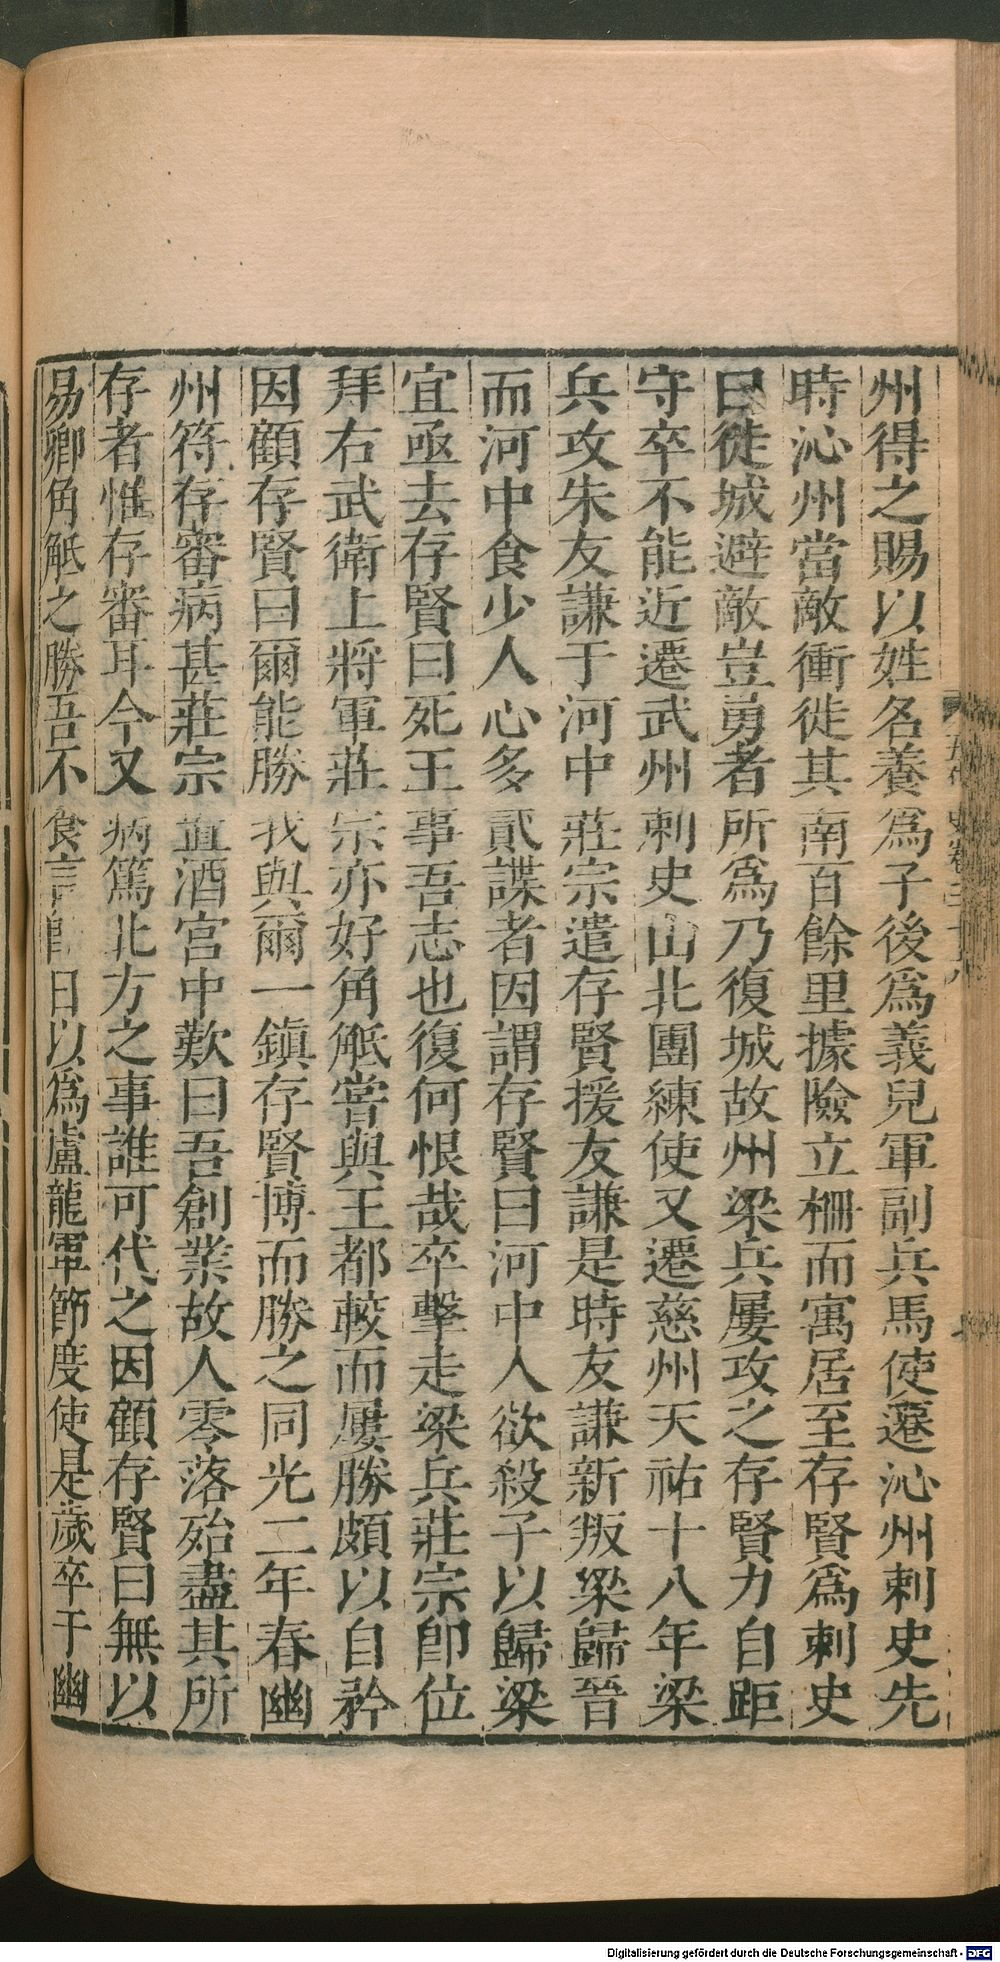 州得之賜以姓名養爲子後爲義兒軍副兵馬使遷沁州刺史先
時沁州當敵衝徙其南百餘里據險立柵而寓居至存賢爲刺史
曰徙城避敵豈勇者所爲乃復城故州梁兵屢攻之存賢力自距
守卒不能近遷武州刺史山北團練使又遷慈州天祐十八年梁
兵攻朱友謙于河中莊宗遣存賢援友謙是時友謙新叛梁歸晉
而河中食少人心多貳諜者因謂存賢曰河中人欲殺子以歸梁
宜亟去存賢曰死王事吾志也復何恨哉卒擊走梁兵莊宗卽位
拜右武衛上將軍莊宗亦好角觝嘗與王都較而屢勝頗以自矜
因顧存賢曰爾能勝我與爾一鎮存賢博而勝之同光二年春幽
州符存審病甚莊宗置酒宮中歎曰吾創業故人零落殆盡其所
存者惟存審耳今又病篤北方之事誰可代之因顧存賢曰無以
易卿角觝之勝吾不食言卽日以爲盧龍軍節度使是歲卒于幽
Digitalisierung gefördert durch die Deutsche Forschungsgemeinschaft - DFG